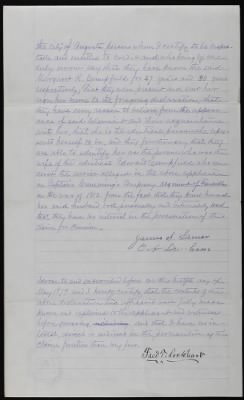 the City of Augusta persons whom I certify to be respec-
table and entitled to credit and who being by me
duly sworn say that they have known the said
Margaret R. Campfield for 27 years and 30 years
respectively; that they were present and saw her
sign her name to the foregoing declaration; that
they have every reason to believe from the appear-
ance of said claimant and their acquaintance
with her, that she is the identical person she repre-
sents herself to be, and they further say that they
are able to identify her as the person who was the
wife of the identical Edward Campfield who ren-
dered the service alleged in the above application
in Captain Cumming's Company, Regiment of
in the war of 1812 from the fact that they have known
her said husband both personally and intimately and
that they have no interest in the prosecution of this
claim for Pension.
James S. Lamar
Sworn to and subscribed before me this day of
May 1879 and I hereby certify that the contents of the
above declaration &c. were fully made
known and explained to the applicant and witnesses
before swearing and that I have no in-
terest, direct or indirect in the prosecution of this
claim
Fred T. Lockhart